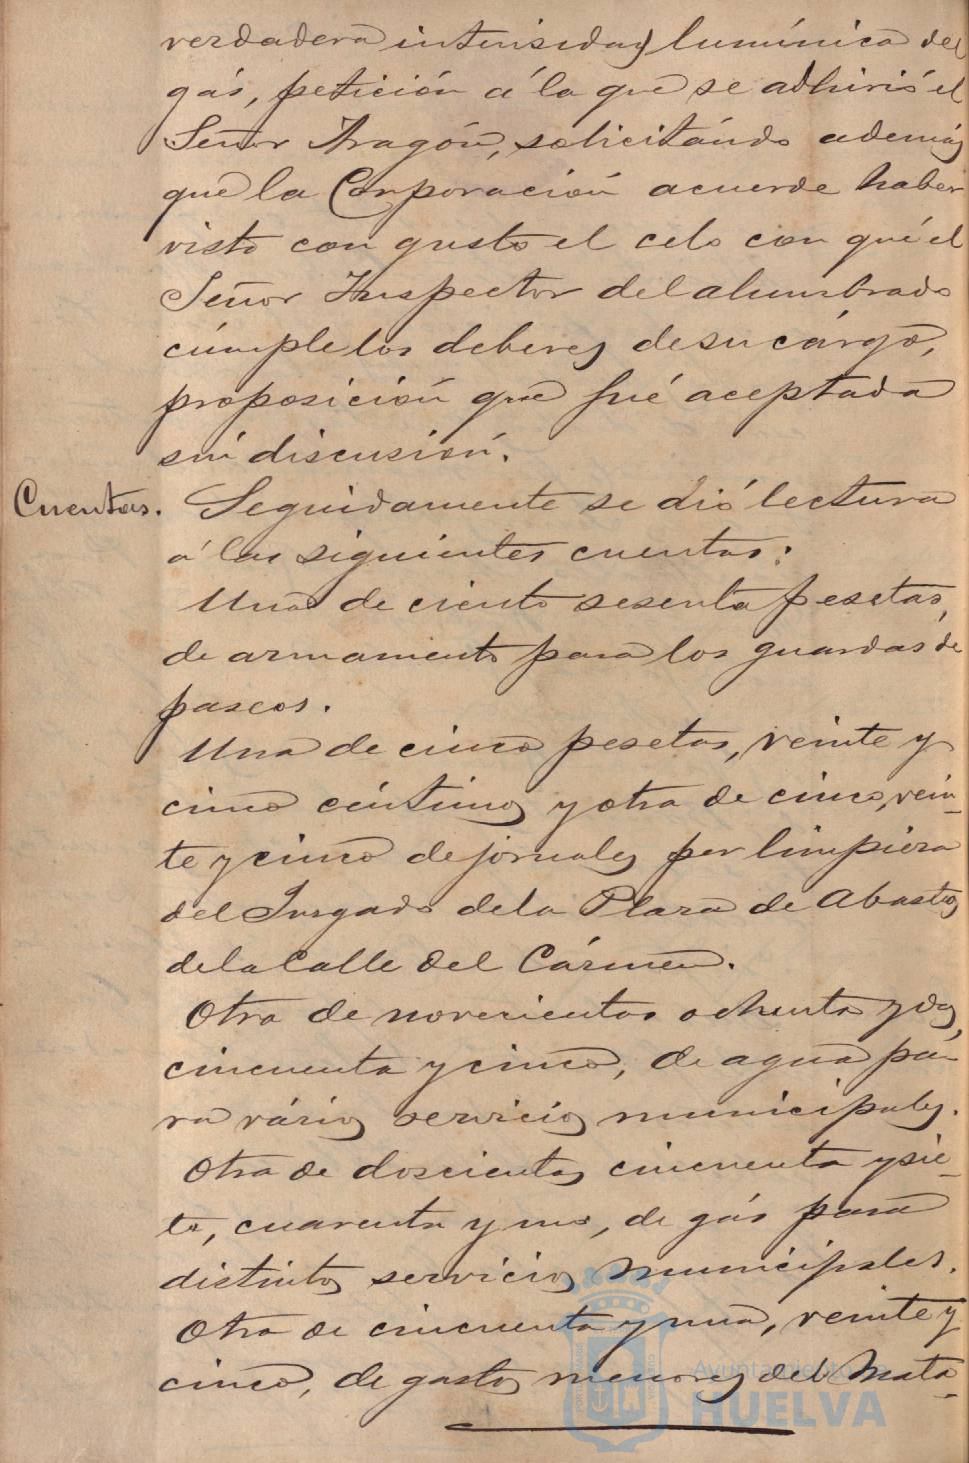 verdadera intensidad lumínica del
gás, petición á la que se adhirió el
Señor Aragón, solicitándo además
que la Corporación acuerde haber
visto con gusto el celo con qué el
Señor Inspector del alumbrado
cúmple los deberes de su cárgo,
proposición que fué aceptada
sin discusión.
Cuentas. Seguidamente se dió lectura
á las siguientes cuentas:
Una de ciento sesenta pesetas,
de armamento para los guardas de
paseos.
Una de cinco pesetas, veinte y
cinco céntimos y otra de cinco, vein-
te y cinco de jornales por limpieza
del Jusgado de la Plaza de Abastos
de la Calle del Cármen.
Otra de novecientas ochenta y dos,
cincuenta y cinco, de agua pa-
ra vários servicios municipales.
Otra de doscientas cincuenta y sie-
te, cuarenta y uno, de gás para
distintos servicios municipales.
Otra de cincuenta y una, veinte y
cinco, de gastos menores del Mata-
Ayuntamiento de
HUELVA